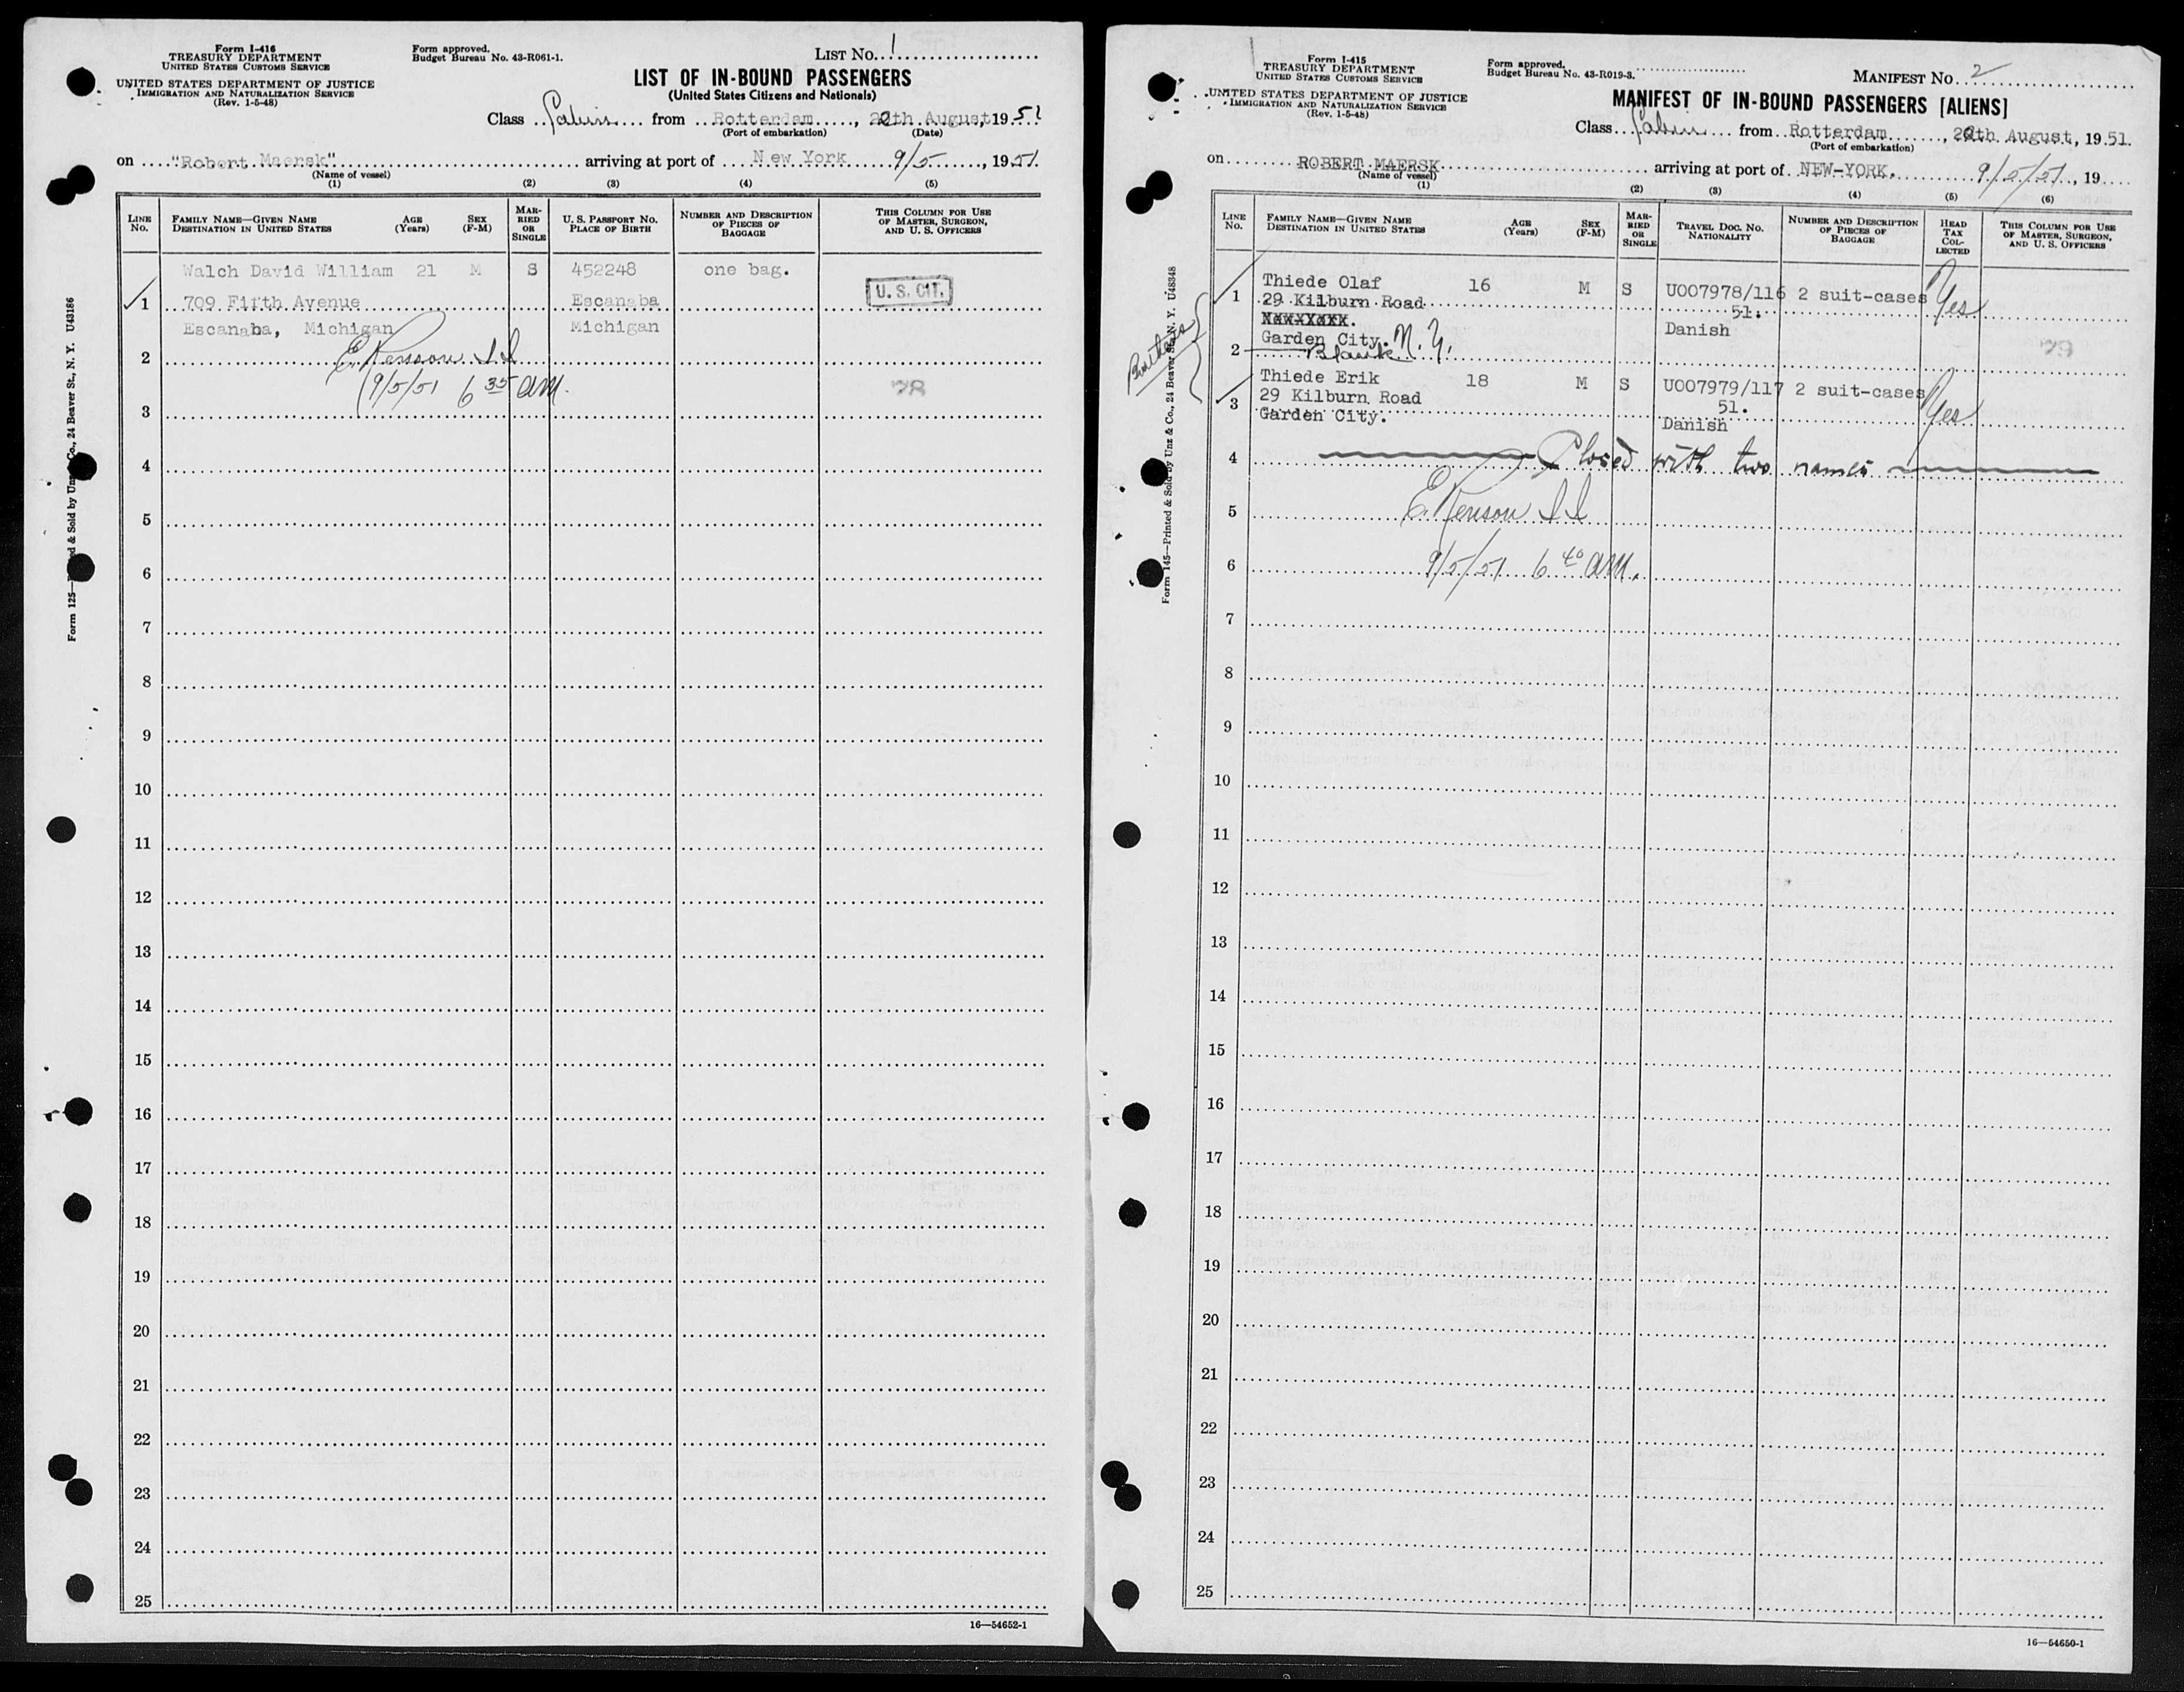 Form I-416
TREASURY DEPARTMENT
UNITED STATES CUSTOMS SERVICE
UNITED STATES DEPARTMENT OF JUSTICE
IMMIGRATION AND NATURALIZATION SERVICE
(Rev. 1-5-48)
Form approved.
Budget Bureau No. 43-R061-1.
LIST NO. 1
LIST OF IN-BOUND PASSENGERS
(United States Citizens and Nationals)
Class Cabin from Rotterdam, 22th August, 1951
(Port of embarkation) (Date)
on "Robert Maersk" arriving at port of New York 9/5, 1951.
(Name of vessel)
(1) (2) (3) (4) (5)
LINE NO.
FAMILY NAME—GIVEN NAME
DESTINATION IN UNITED STATES
AGE (Years)
SEX (F-M)
MARRIED OR SINGLE
U. S. PASSPORT NO.
PLACE OF BIRTH
NUMBER AND DESCRIPTION OF PIECES OF BAGGAGE
THIS COLUMN FOR USE OF MASTER, SURGEON, AND U. S. OFFICERS
Walch David William 21 M S 452248 one bag.
1 709 Fifth Avenue Escanaba U. S. CIT.
Escanaba, Michigan Michigan
2 E. Kenson II
9/5/51 6 35 am. 78
3
4
5
6
7
8
9
10
11
12
13
14
15
16
17
18
19
20
21
22
23
24
25
16—54652-1
24 Beaver St., N. Y. U43186
Form I-415
TREASURY DEPARTMENT
UNITED STATES CUSTOMS SERVICE
UNITED STATES DEPARTMENT OF JUSTICE
IMMIGRATION AND NATURALIZATION SERVICE
(Rev. 1-5-48)
Form approved.
Budget Bureau No. 43-R019-3.
MANIFEST NO. 2
MANIFEST OF IN-BOUND PASSENGERS [ALIENS]
Class Cabin from Rotterdam, 22th August, 1951.
(Port of embarkation)
on ROBERT MAERSK arriving at port of NEW-YORK. 9/5/51, 19
(Name of vessel)
(1) (2) (3) (4) (5) (6)
LINE NO.
FAMILY NAME—GIVEN NAME
DESTINATION IN UNITED STATES
AGE (Years)
SEX (F-M)
MARRIED OR SINGLE
TRAVEL DOC. NO.
NATIONALITY
NUMBER AND DESCRIPTION OF PIECES OF BAGGAGE
HEAD TAX COLLECTED
THIS COLUMN FOR USE OF MASTER, SURGEON, AND U. S. OFFICERS
Thiede Olaf 16 M S U007978/116 2 suit-cases Yes
1 29 Kilburn Road 51.
Danish
Garden City. N.Y. 79
2 Blank
Brothers
Thiede Erik 18 M S U007979/117 2 suit-cases Yes
3 29 Kilburn Road 51.
Garden City. Danish
4 Closed with two names
5 E. Kenson II
6 9/5/51 6 40 am.
7
8
9
10
11
12
13
14
15
16
17
18
19
20
21
22
23
24
25
16—54650-1
Form 145—Printed & Sold by Unz & Co., 24 Beaver St., N. Y. U48348